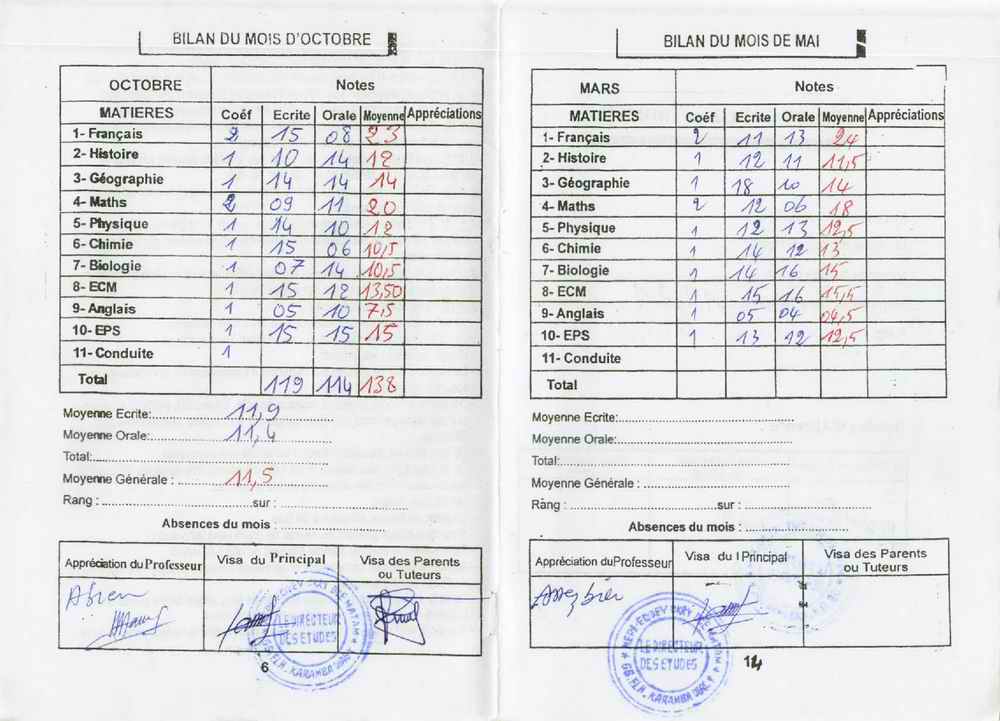 BILAN DU MOIS D'OCTOBRE
OCTOBRE Notes
MATIERES Coéf Ecrite Orale Moyenne Appréciations
1- Français 2 15 08 23
2- Histoire 1 10 14 12
3- Géographie 1 14 14 14
4- Maths 2 09 11 20
5- Physique 1 14 10 12
6- Chimie 1 15 06 10,5
7- Biologie 1 07 14 10,5
8- ECM 1 15 12 13,50
9- Anglais 1 05 10 7,5
10- EPS 1 15 15 15
11- Conduite 1
Total 119 114 138
Moyenne Ecrite: 11,9
Moyenne Orale: 11,4
Total:
Moyenne Générale : 11,5
Rang : sur :
Absences du mois :
Appréciation du Professeur Visa du Principal Visa des Parents
ou Tuteurs
LE DIRECTEUR
DES ETUDES
6
BILAN DU MOIS DE MAI
MARS Notes
MATIERES Coéf Ecrite Orale Moyenne Appréciations
1- Français 2 11 13 24
2- Histoire 1 12 11 11,5
3- Géographie 1 18 10 14
4- Maths 2 12 06 18
5- Physique 1 12 13 12,5
6- Chimie 1 14 12 13
7- Biologie 1 14 16 15
8- ECM 1 15 16 15,5
9- Anglais 1 05 04 04,5
10- EPS 1 13 12 12,5
11- Conduite
Total
Moyenne Ecrite:
Moyenne Orale:
Total:
Moyenne Générale :
Rang : sur :
Absences du mois :
Appréciation du Professeur Visa du Principal Visa des Parents
ou Tuteurs
Assez bien
LE DIRECTEUR
DES ETUDES
14